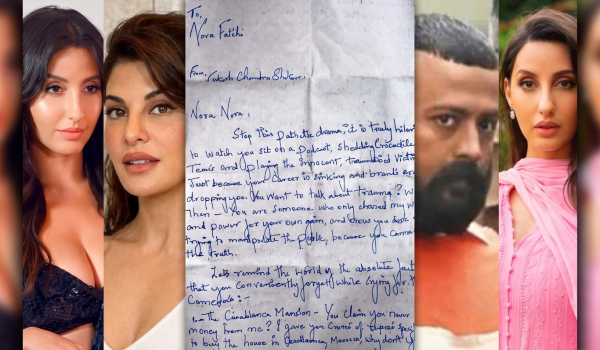 To,
Nora Fatehi
From, Sukash Chandra Shekar.
Nora Nora,
Stop this Pathetic drama, it is truly hilar
to watch you sit on a Podcast, Shedding Crocodile
Tears and playing the innocent, traumatised Victim
Just because your career is sinking and brands are
dropping you. You want to talk about trauma? W
then - You are someone who only chased my w
and power for your own gain, and
trying to manipulate the people, because you canno
the truth.
Lets remind the world of the absolute fact
that you conveniently forgot while crying for
Cameras:-
The Casablanca Mansion - You claim you never
money from me? I gave you Crores of rupees
to buy the house in Casablanca, Morocco, why don't